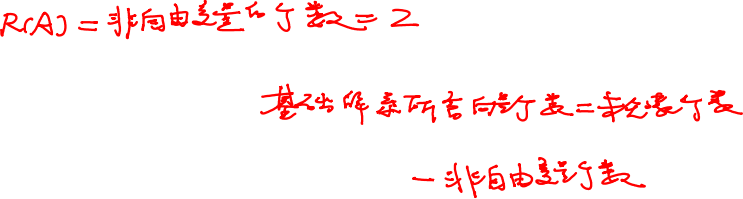 R(A)=非自由变量的个数=2
基础解系所含向量个数=未知数个数
-非自由变量个数